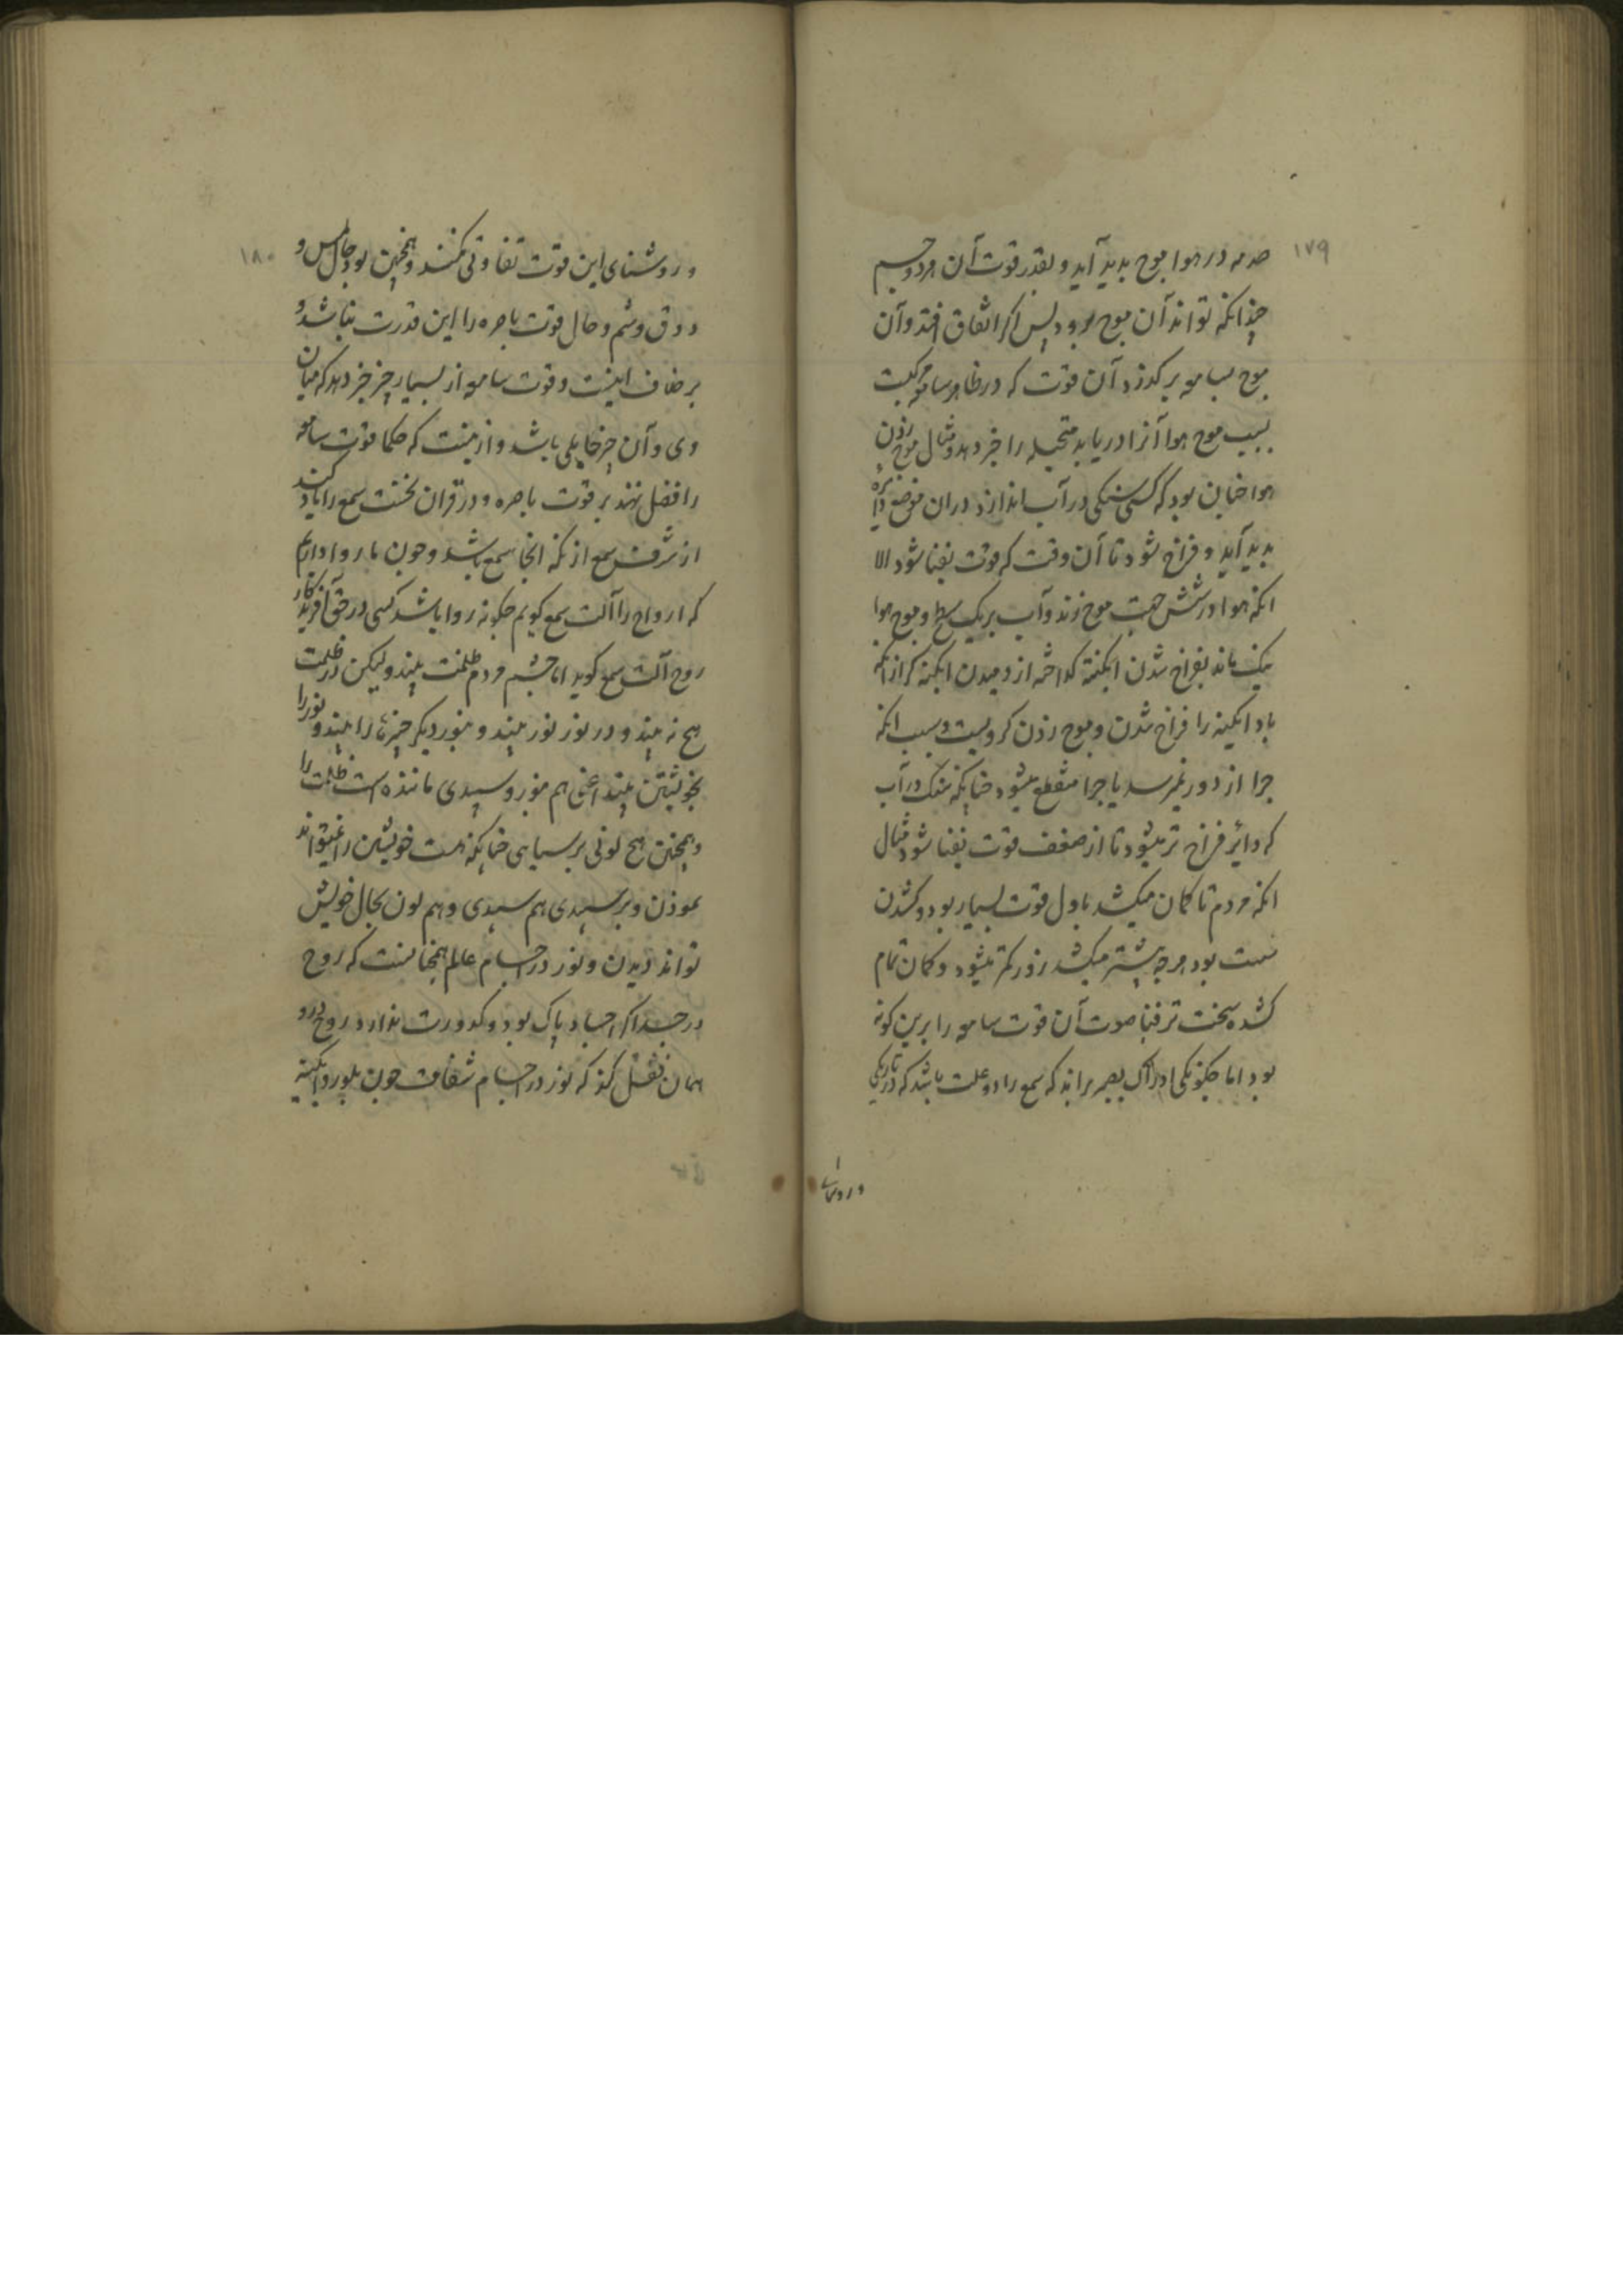 ۱۷۹
صدمه در هوا موج بدید آید و بقدر قوت آن هر دو جسم
چندانکه تواند آن موج برود پس اکر اتفاق افتد و آن
موج بسامعه بر کذرد آن قوت که در ظاهر سامعه مرکبست
بسبب موج هوا آنرا دریابد متخیله را خبر دهد و مثال موج زذن
هوا جنان بود که کسی سنکی در آب اندازد در ان موضع دایره
بدید آید و فراخ شود تا آن وقت که قوت بفنا شود الا
انکه هوا در شش جهت موج زند و آب بر یک سطح و موج هوا
نیک ماند بفراخ شدن ابکینه کداخته از دمیدن ابکینه کر از انکه
باد ابکینه را فراخ شدن و موج زذن کرویست و سبب انکه
جرا از دور نمیرسد یا جرا منقطع میشود جنانکه سنک در آب
که دایر فراخ تر میشود تا از ضعف قوت بفنا شود مثال
انکه مردم تا کمان میکشد باول قوت بسیار بود و کشدن
سست بود هرجه بیشتر میکشد زور کمتر میشود و کمان تمام
کشده سخت تر فنا صوت آن قوت سامعه را برین کونه
بود اما جکونکی ادراک بصر براند که سمع را دو علت باشد که در تاریکی
و روشنای
۱۸۰
و روشنای این قوت تفاوتی نکند و همجنین بود حال لمس و
ذوق و شم و حال قوت باصره را این قدرت نباشد و
بر خلاف اینست و قوت سامعه از بسیار جیز خبر دهد که میان
وی و آن جیز حایلی باشد و ازینست که حکما قوت سامعه
را فضل نهند بر قوت باصره و در قران نخست سمع را یاد کنند
از شرف سمع از انکه انجا سمع باشد و جون ما روا داریم
که ارواح را آلت سمع کویم جکونه روا باشد کسی در حق آفریدکار
روح آلت سمع کوید اما جشم مردم ظلمت بیند و لیکن در ظلمت
هیج نه بیند و در نور نور بیند و بنور دیکر جیزها را بیند و نور را
بخویشتن بیند اعنی هم بنور و سپیدی ماننده است ظلمت را
و همجنین هیج لونی بر سیاهی جنانکه هست خویشتن را نمیتواند
نموذن و بر سپیدی هم سپیدی و هم لون بحال خویش
تواند دیدن و نور در اجسام عالم همجنانست که روح
در جسد اکر اجساد پاک بود و کدورت ندارد روح درو
همان فعل کند که نور در اجسام شفاف جون بلور و ابکینه